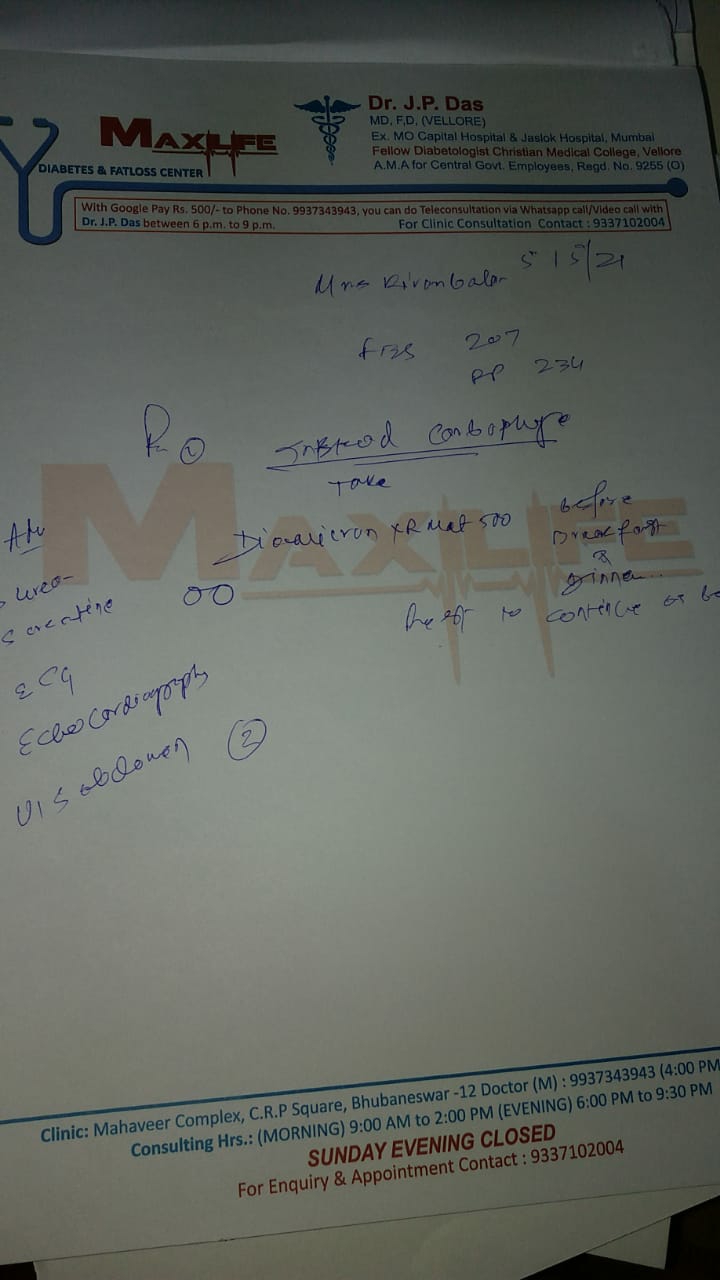 MAXLIFE
DIABETES & FATLOSS CENTER
Dr. J.P. Das
MD, F,D, (VELLORE)
Ex. MO Capital Hospital & Jaslok Hospital, Mumbai
Fellow Diabetologist Christian Medical College, Vellore
A.M.A for Central Govt. Employees, Regd. No. 9255 (O)
With Google Pay Rs. 500/- to Phone No. 9937343943, you can do Teleconsultation via Whatsapp call/Video call with
Dr. J.P. Das between 6 p.m. to 9 p.m. For Clinic Consultation Contact : 9337102004
5/5/21
Mrs
FBS 207
PP 234
Rx ①
Take
MAXLIFE
XR Met 500
before
Breakfast
&
Dinner
Rest to continue as
Urea
S creatine
ECG
Echocardiography
U/S abdomen ②
Clinic: Mahaveer Complex, C.R.P Square, Bhubaneswar -12 Doctor (M) : 9937343943 (4:00 PM
Consulting Hrs.: (MORNING) 9:00 AM to 2:00 PM (EVENING) 6:00 PM to 9:30 PM
SUNDAY EVENING CLOSED
For Enquiry & Appointment Contact : 9337102004